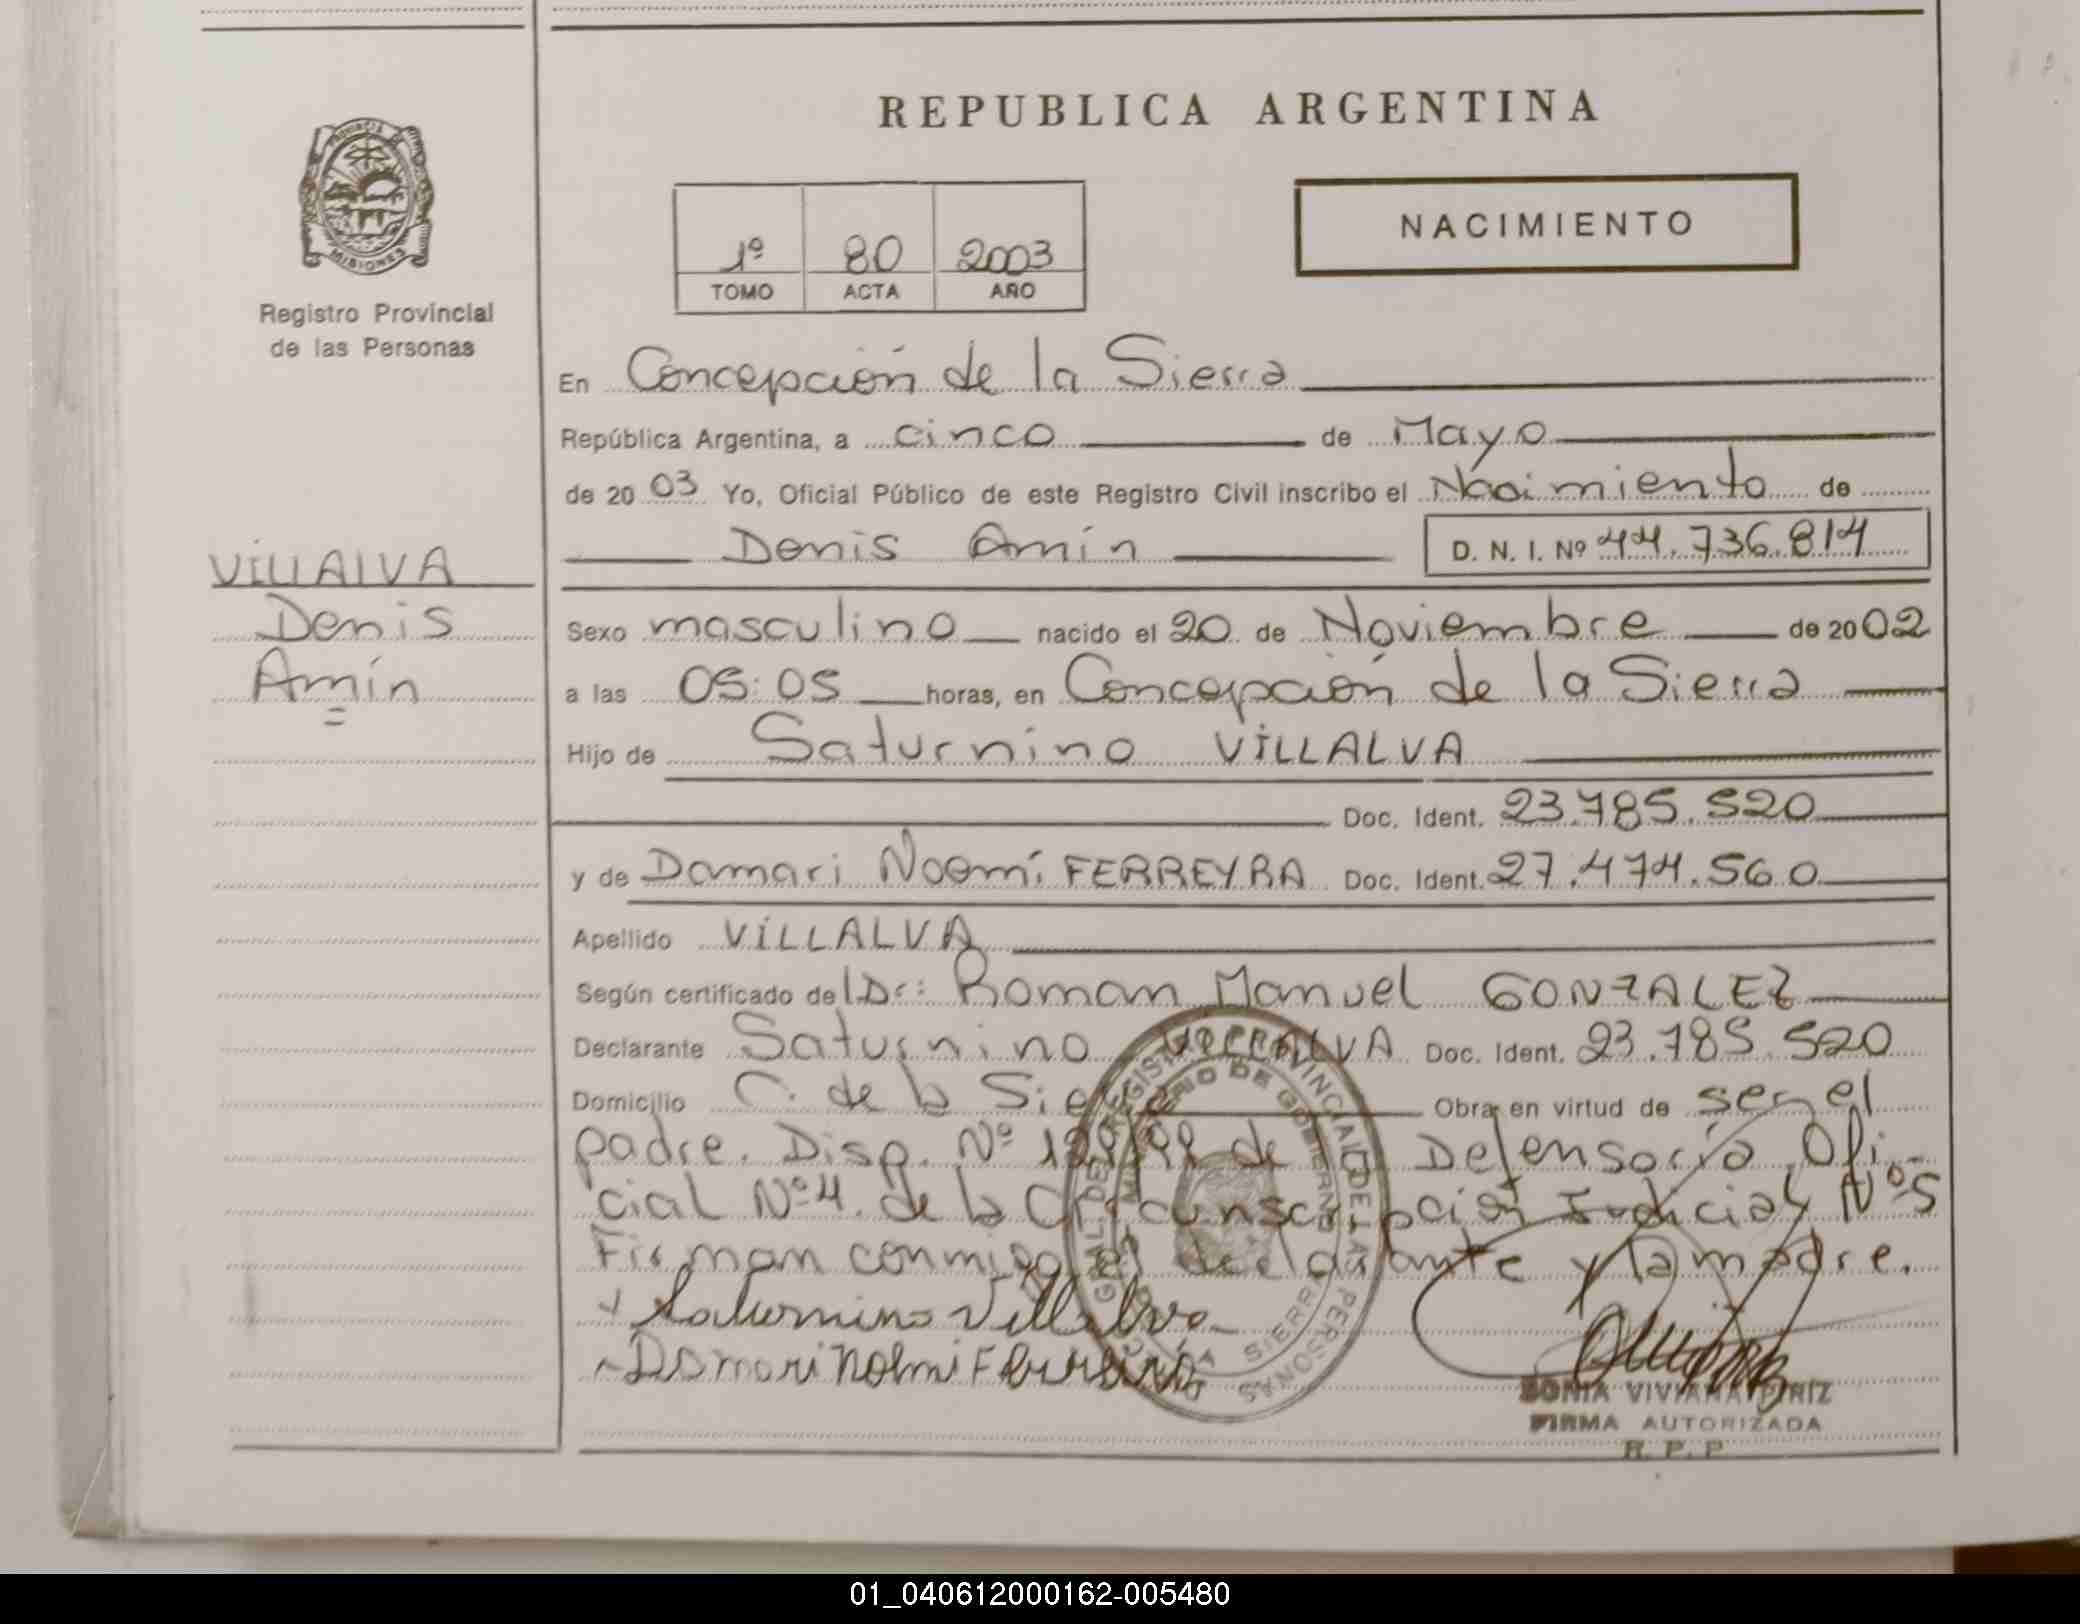 PROVINCIA DE
MISIONES
Registro Provincial
de las Personas
VILLALVA
Denis
Amín
REPUBLICA ARGENTINA
1º 80 2003
TOMO ACTA AÑO
NACIMIENTO
En Concepción de la Sierra
República Argentina, a cinco de Mayo
de 20 03 Yo, Oficial Público de este Registro Civil inscribo el Nacimiento de
Denis Amín D. N. I. Nº 44.736.814
Sexo masculino nacido el 20 de Noviembre de 20 02
a las 05:05 horas, en Concepción de la Sierra
Hijo de Saturnino VILLALVA
Doc. Ident. 23.785.520
y de Damari Noemí FERREYRA Doc. Ident. 27.474.560
Apellido VILLALVA
Según certificado del Dr: Roman Manuel GONZALEZ
Declarante Saturnino VILLALVA Doc. Ident. 23.785.520
Domicilio C. de la Sierra Obra en virtud de ser el
padre. Disp. Nº de la Defensoría Ofi-
cial Nº 4 de la Circunscripción Judicial Nº 5
Firman conmigo el declarante y la madre.
Saturnino Villalva
Damari Noemi Ferreira
REGISTRO PROVINCIAL DE LAS PERSONAS
MINISTERIO DE GOBIERNO
SIERRA
SONIA VIVIANA PIRIZ
FIRMA AUTORIZADA
R. P. P
01_040612000162-005480